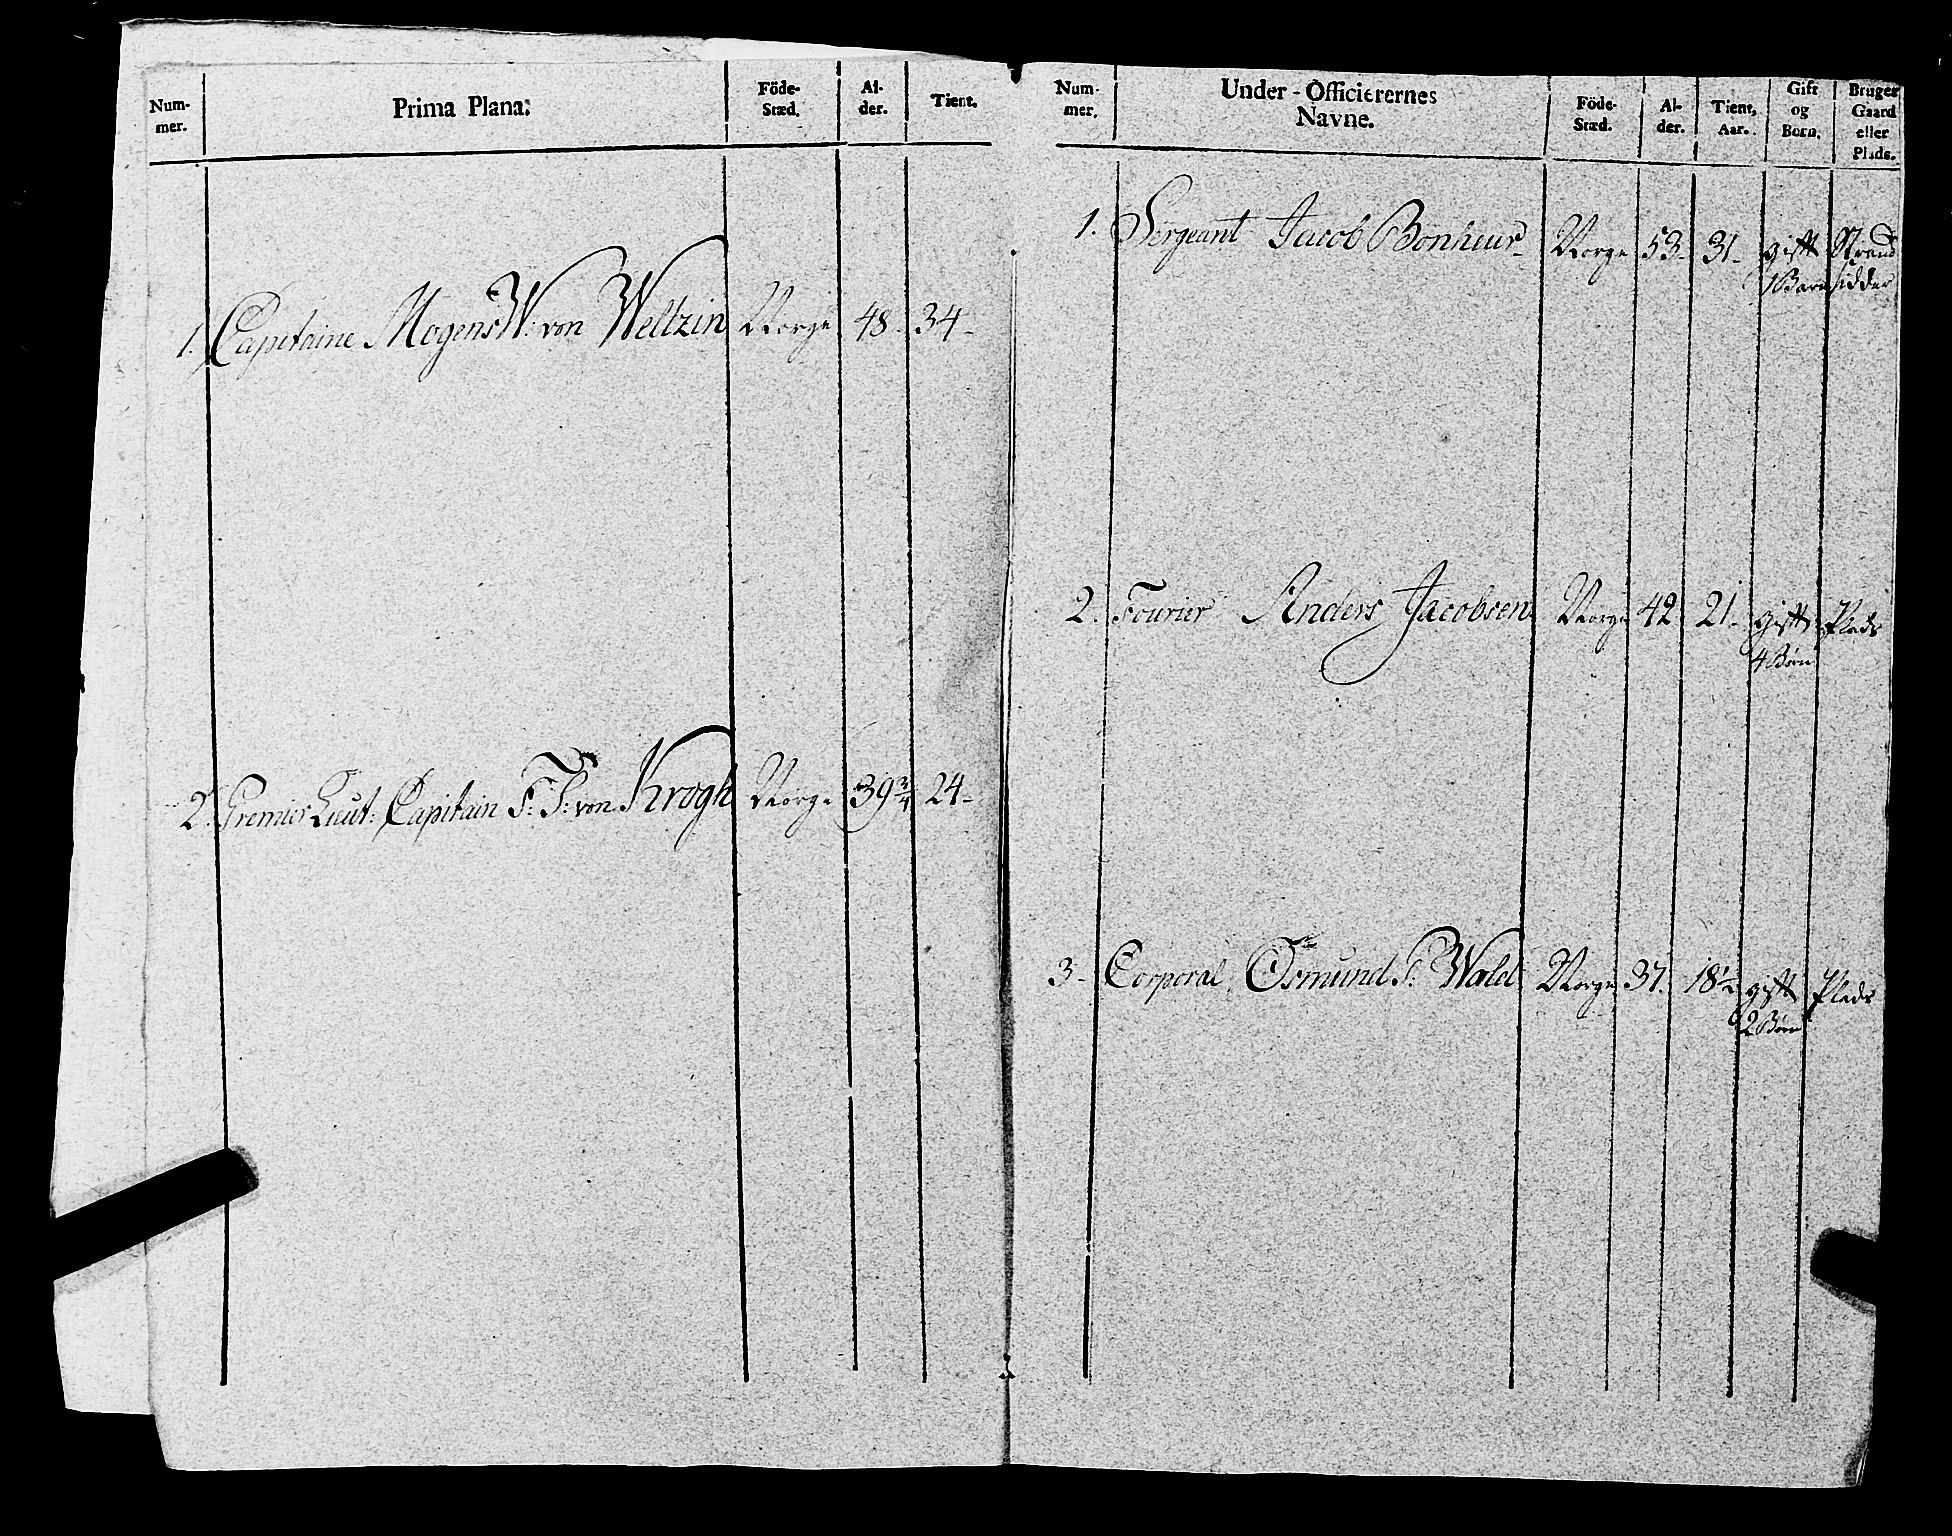 Num- mer. Prima Plana: Föde- Stæd. Al- der. Tient.
1. Capitaine Mogens W: von Weltzin Norge 48 - 34 -
2. Premier Lieut: Capitain F: F: von Krogh Norge 39 3/4 24 -
Num- mer. Under-Officierernes Navne. Föde- Stæd. Al- der. Tient, Aar. Gift og Born. Bruger Gaard eller Plads.
1. Sergeant Jacob Bonheur Norge 53 - 31 - gift Strand
1 Barn sidder
2. Fourier Anders Jacobsen Norge 42 21 - gift Plads
4 Børn
3 - Corporal Osmund S: Wald Norge 37. 18 1/2 gift Plads
2 Børn